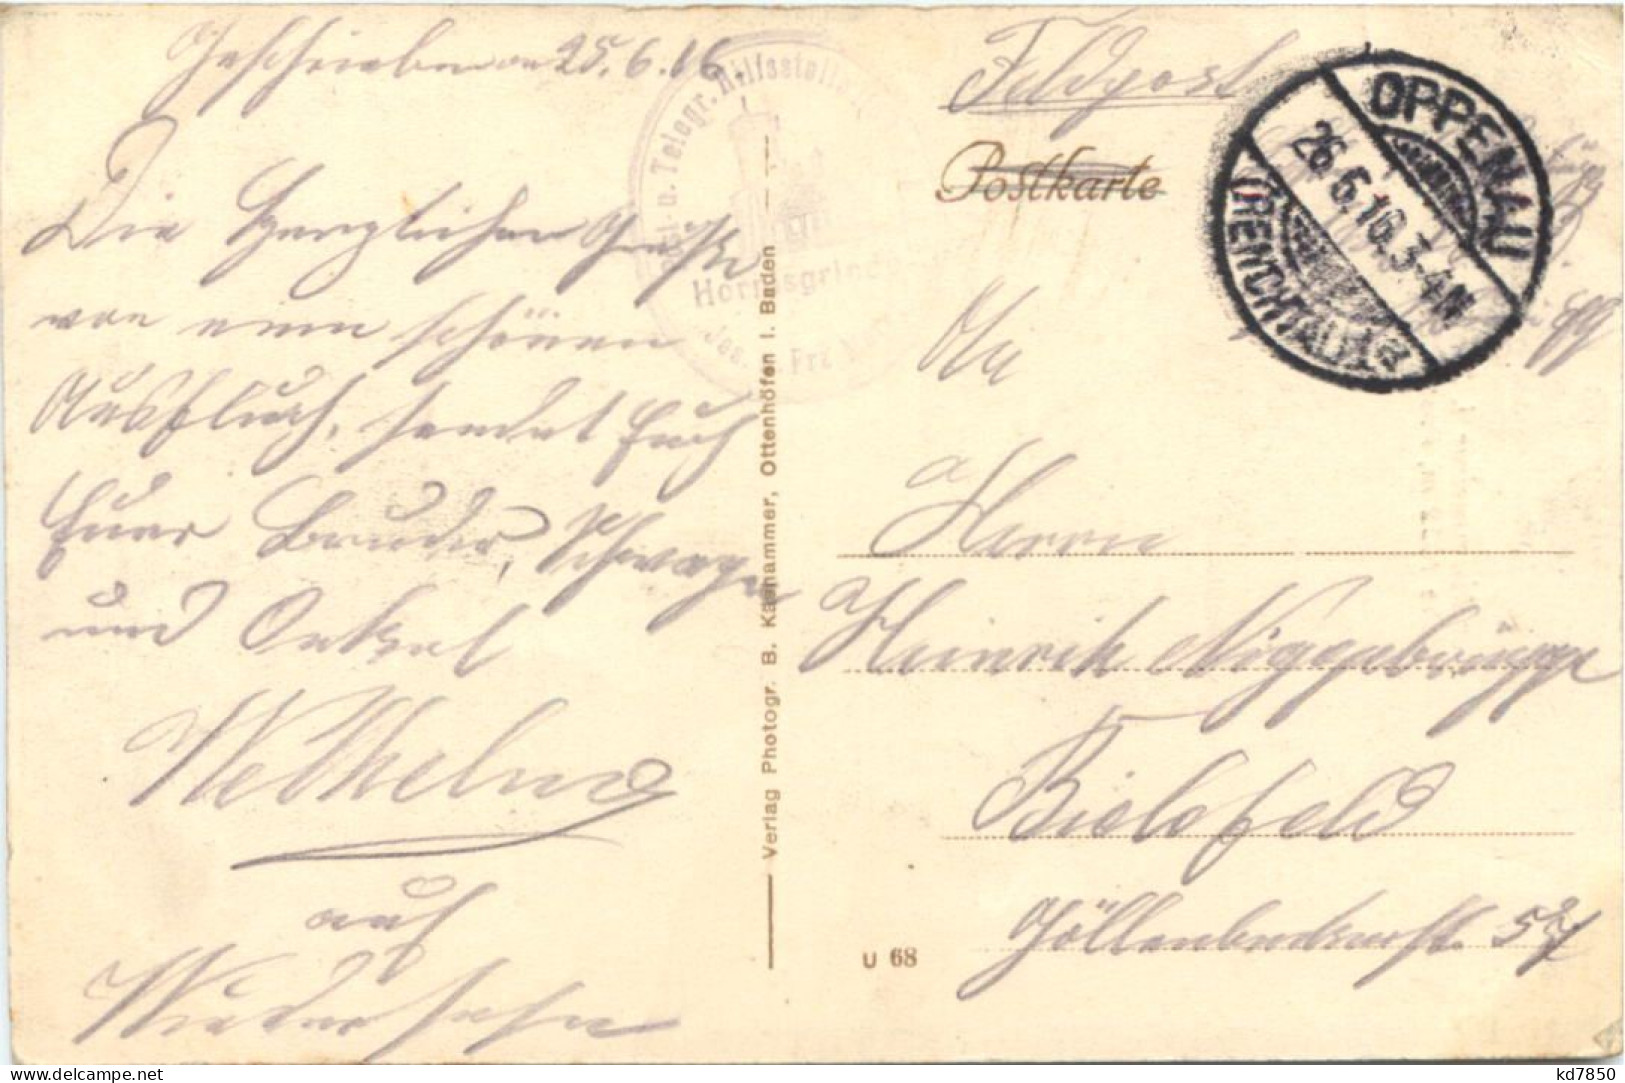 Geschrieben am 25.6.16.
Die Herzlichen Grüße
von einem schönen
Ausfluch, sendet Euch
Euer Bruder, Schwager
und Onkel
Wilhelm
auf
Wiedersehn
Post- u. Telegr. Hilfsstelle
Hornisgrinde
Verlag Photogr. B. Kaahammer, Ottenhöfen i. Baden
U 68
Feldpost
Postkarte
OPPENAU
26.6.16.3-4N
(RENCHTAL) * a
An
Herrn
Heinrich Niggebrügge
Bielefeld
Göllenbeckerstr. 57
delcampe.net
kd7850